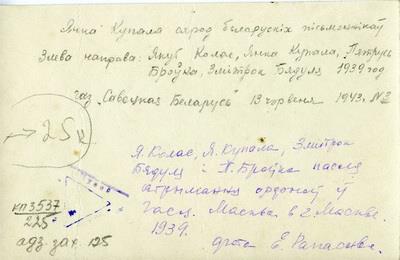 Янка Купала сярод беларускіх пісьменнікаў
Злева направа: Якуб Колас, Янка Купала, Пятрусь
Броўка, Змітрок Бядуля 1939 год
газ. „Савецкая Беларусь" 13 чэрвеня 1943. №2
→ 25
Я. Колас, Я. Купала, Змітрок
Бядуля і П. Броўка пасля
атрымання ордэнаў у
гасц. Масква в г. Москве.
1939.
фота Е.
КП 3537
225
адз. зах. 125